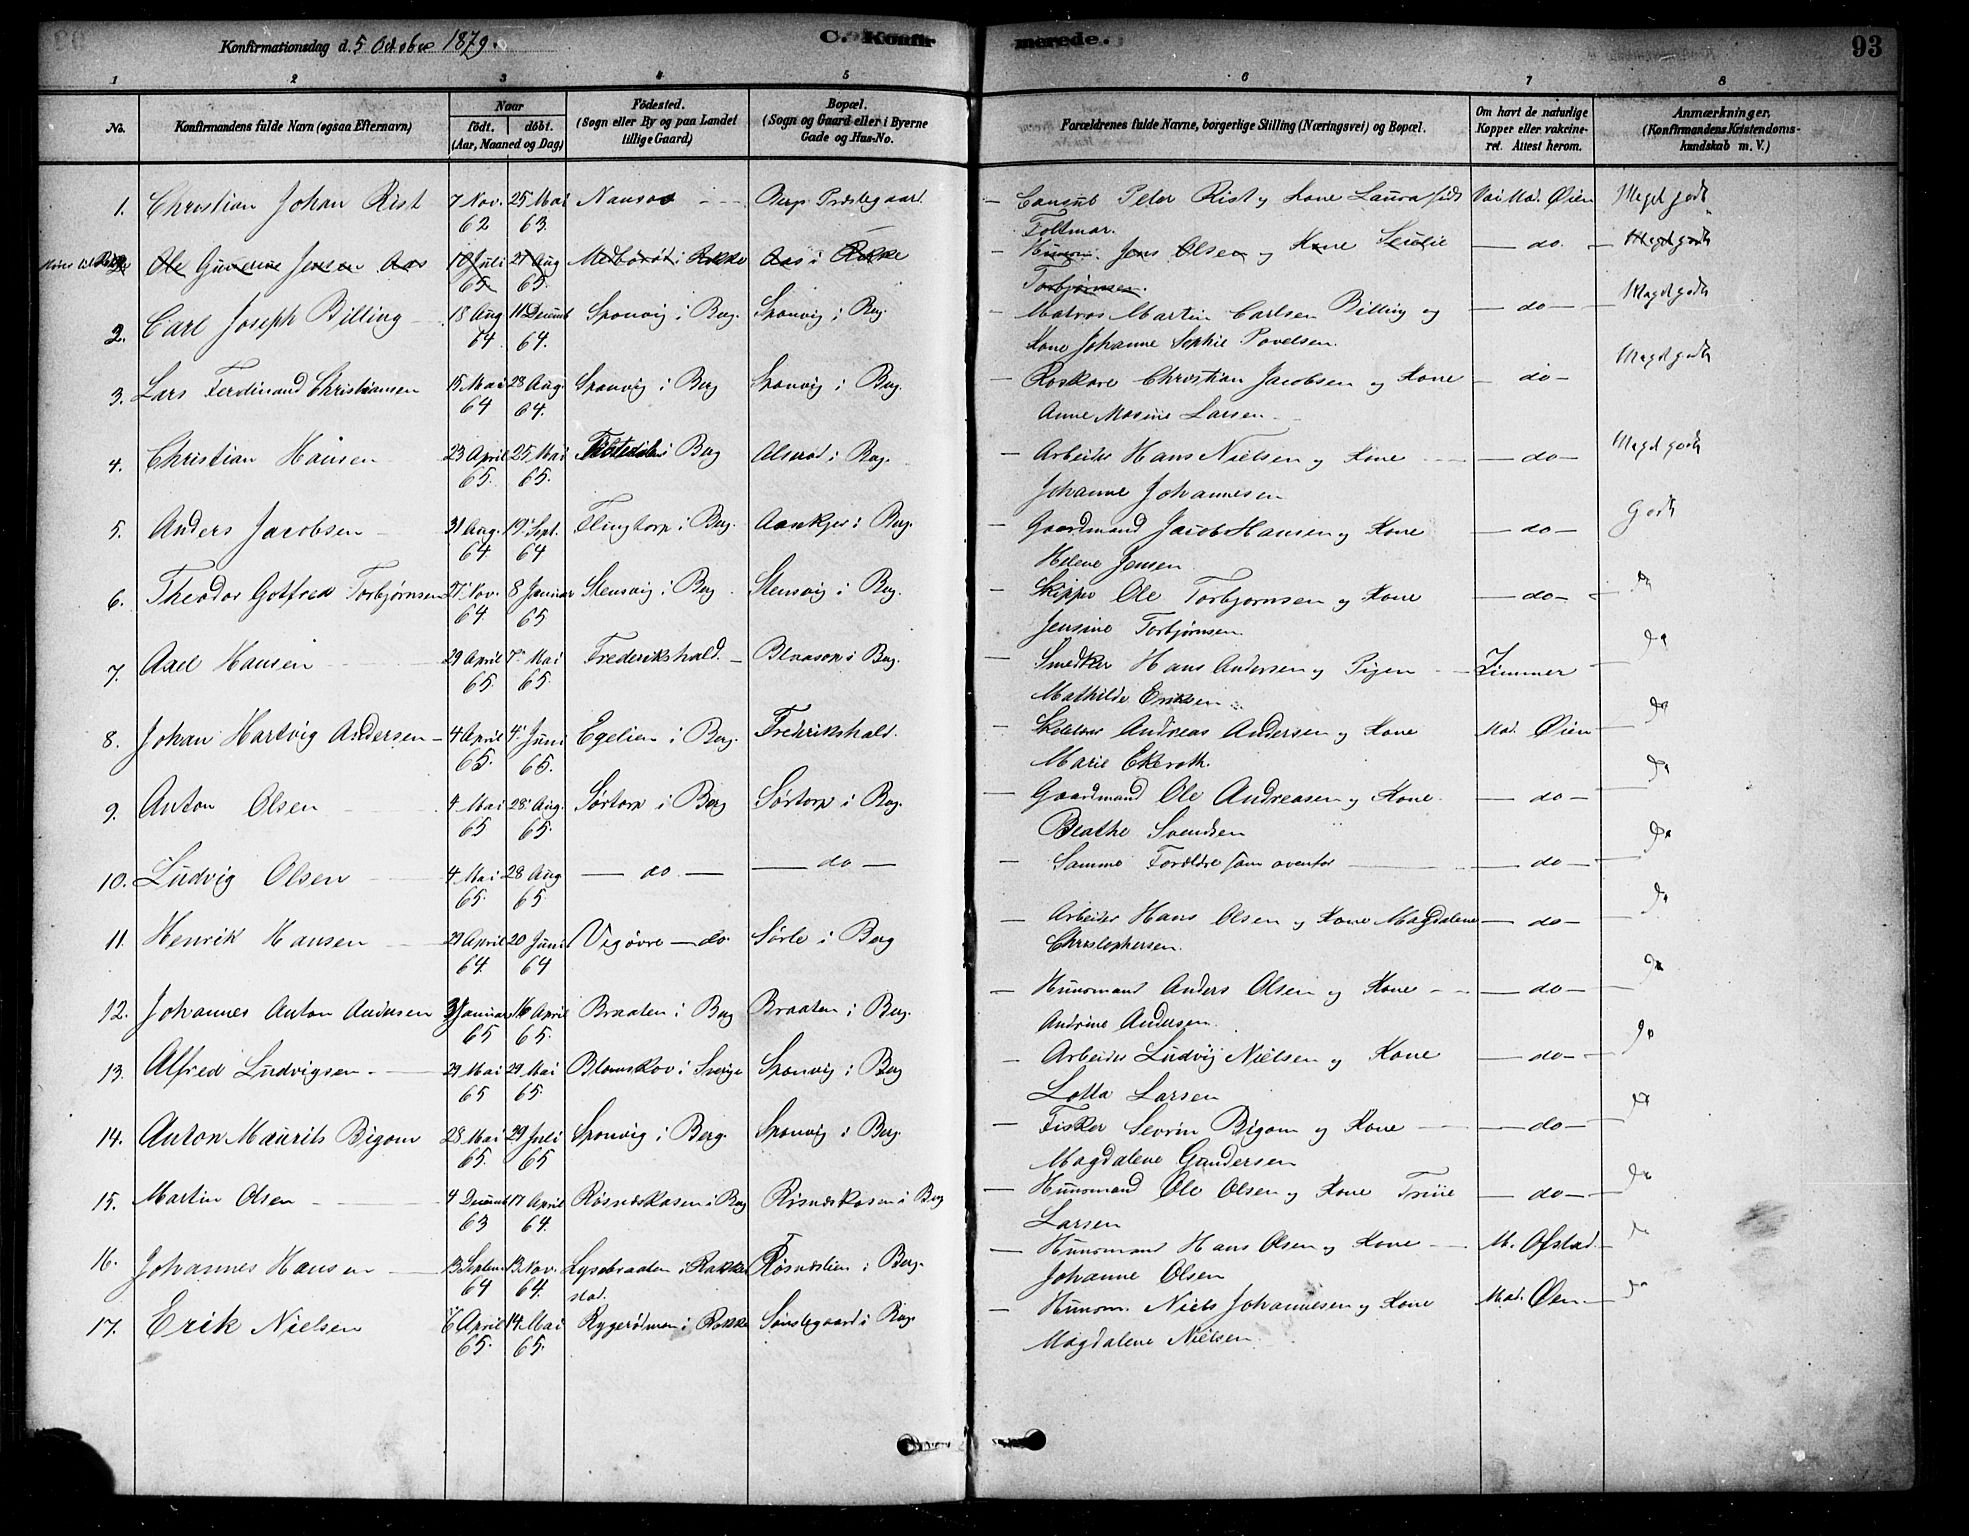 Konfirmationsdag d. 5 Octobre 1879.
C. Konfirmerede.
93
1 2 3 4 5 6 7 8
No.
Konfirmandens fulde Navn (ogsaa Efternavn)
Naar
födt.
döbt.
(Aar, Maaned og Dag)
Födested.
(Sogn eller By og paa Landet
tillige Gaard)
Bopæl.
(Sogn og Gaard eller i Byerne
Gade og Hus-No.
Forældrenes fulde Navne, borgerlige Stilling (Næringsvei) og Bopæl.
Om havt de naturlige
Kopper eller vakcine-
ret. Attest herom.
Anmærkninger.
(Konfirmandens Kristendoms-
kundskab m. V.)
1. Christian Johan Rist 7 Nov. 25 Mai Berg Præstegaard. — Consul Peter Rist og Kone Laura født Mad. Øien Meget godt
62 63. Foltmar.
Ole Jensen Aas 10 Juli 21 Aug i Rokke Aas i Rokke — Huusm. Jens Olsen og Kone — do — Meget godt
65 65. Torbjørnsen.
2. Carl Joseph Billing 18 Aug 11 Decemb Sponvig i Berg. Sponvig i Berg — Matros Martin Carlsen Billing og — do — Meget godt
64 64. Kone Johanne Sophie Povelsen.
3. Lars Ferdinand Christiansen 15 Mai 28 Aug. Sponvig i Berg Sponvig i Berg. — Christian Jacobsen og Kone — do — Meget godt
64 64. Anne Larsen
4. Christian Hansen 23 April 25 Mai i Berg i Berg. — Arbeider Hans Nielsen og Kone — do — Meget godt
65. 65. Johanne Johannesen
5. Anders Jacobsen 31 Aug. 19 Sept. i Berg. i Berg. — Gaardmand Jacob Hansen og Kone — do — Godt
64. 64 Helene Jensen.
6. Theodor Gotfred Torbjørnsen 27 Nov. 8 Januar Stensvig i Berg Stensvig i Berg. — Skipper Ole Torbjørnsen og Kone — do — do
64. 65 Jensine Torbjørnsen.
7. Axel Hansen 29 April 7 Mai Frederikshald. i Berg. — Hans Andersen og Pigen — Zimmer do
65. 65. Mathilde Eriksen
8. Johan Hartvig Andersen 4 April 4 Juni Egelien i Berg. Fredrikshald. — Andreas Andersen og Kone Mad. Øien do
65. 65. Marie Ekeroth.
9. Anton Olsen 4 Mai 28 Aug. Sørtorp i Berg Sørtorp i Berg. — Gaardmand Ole Andreasen og Kone — do — do
65 65. Beathe Svendsen
10. Ludvig Olsen 4 Mai 28 Aug — do — — do — — Samme Forældre som ovenfor — do — do
65. 65.
11. Henrik Hansen 29 April 20 Juni Vigøvre — do Sørle i Berg — Arbeider Hans Olsen og Kone Magdalene — do — do
64. 64 Christophersen.
12. Johannes Anton Andersen 31 Januar 16 April Braaten i Berg Braaten i Berg. — Huusmand Anders Olsen og Kone — do — do
65 65. Andrine Andersen.
13. Alfred Ludvigsen 29 Mai 29 Mai Blomskov i Sverige Sponvig i Berg — Arbeider Ludvig Nielsen og Kone — do — do
65 65. Lotta Larsen
14. Anton Maurits Bigom 28 Mai 29 Juli Sponvig i Berg. Sponvig i Berg. — Fisker Sevrin Bigom og Kone — do — do
65. 65 Magdalene Gundersen
15. Martin Olsen 4 Decemb 17 April Røsnæskasen i Berg Risnæskasen i Berg — Huusmand Ole Olsen og Kone Trine — do — do
63 64. Larsen
16. Johannes Hansen 13 Septem 13 Nov. Lysebraaten i Rakke Røsnæslien i Berg. — Huusmand Hans Olsen og Kone M. Øfstad do
64 64. stad. Johanne Olsen
17. Erik Nielsen 6 April 14 Mai Rygerødmen i Rokke i Berg. — Huusm. Niels Johannesen og Kone Mad. Øien do
65. 65. Magdalene Nielsen